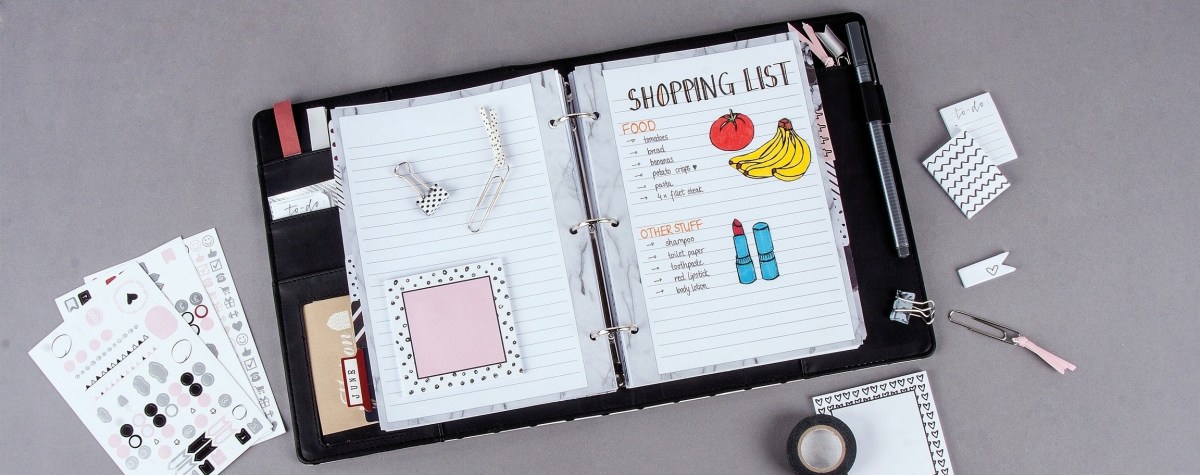 SHOPPING LIST
FOOD
→ tomatoes
→ bread
→ bananas
→ potato crisps ♥
→ pasta
→ 4x fillet steak
OTHER STUFF
→ shampoo
→ toilet paper
→ toothpaste
→ red lipstick
→ body lotion
to-do
to-do